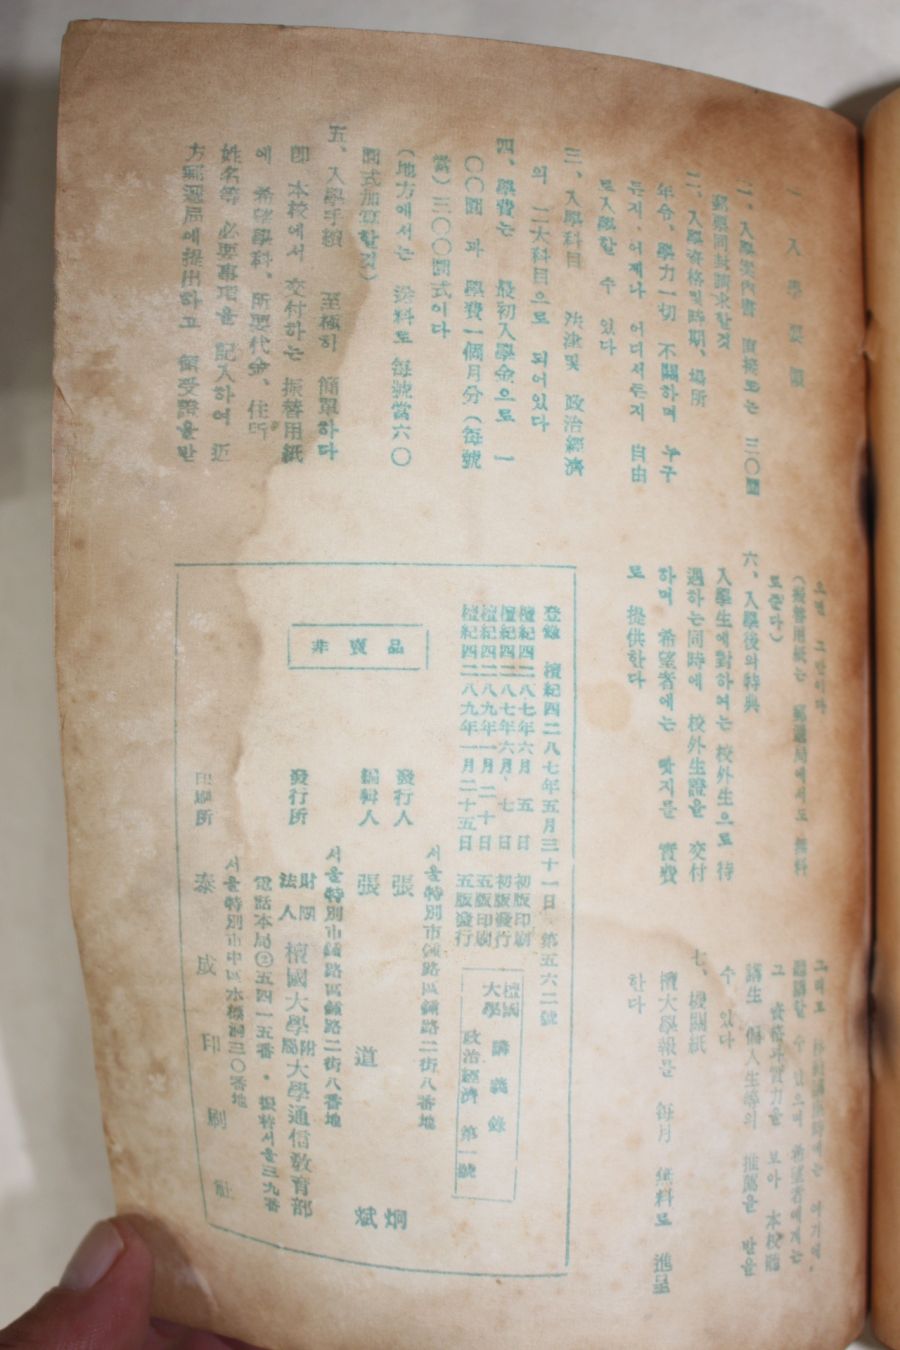 一 入學要領
一、入學案內書 直接또는 三〇圜
郵票同封請求할것
二、入學資格및時期、場所
年令、學力一切 不關하며 누구
든지・어제나 어디서든지 自由
로入學할 수 있다
三、入學科目 法律및 政治經濟
의 二大科目으로 되어있다
四、學費는 最初入學金으로 一
〇〇圜 과 學費一個月分(每號
當)三〇〇圜式이다
(地方에서는 送料로 每號當六〇
圜式加算할것)
五、入學手續 至極히 簡單하다
卽 本校에서 交付하는 振替用紙
에 希望學科、所要代金、住所
姓名等 必要事項을 記入하여 近
方郵遞局에提出하고 領受證을받
으면 그만이다
(振替用紙는 郵遞局에서도 無料
로준다)
六、入學後의特典
入學生에對하여는 校外生으로 待
遇하는同時에 校外生證을 交付
하며 希望者에는 뺏지를 實費
로 提供한다
수 있으며 希望者에게는
그 資格과實力을 보아 本校聽
講生 編入生等의 推薦을 받을
수 있다
七、機關紙
檀大學報를 每月 無料로 進呈
한다
登錄 檀紀四二八七年五月三十一日 第五六二號
檀紀四二八七年六月 五 日 初版印刷
檀紀四二八七年六月、七 日 初版發行
檀紀四二八九年一月 二十日 五版印刷
檀紀四二八九年一月二十五日 五版發行
檀國大學 講義錄
政治經濟 第一號
非賣品
서울特別市鍾路區鍾路二街八番地
發行人 張 炯
編輯人 張 道 斌
서울特別市鍾路區鍾路二街八番地
發行所 財團法人 檀國大學附屬大學通信敎育部
電話本局②五四一五番・振替서울三九番
서울特別市中區水標洞三〇番地
印刷所 泰成印刷社